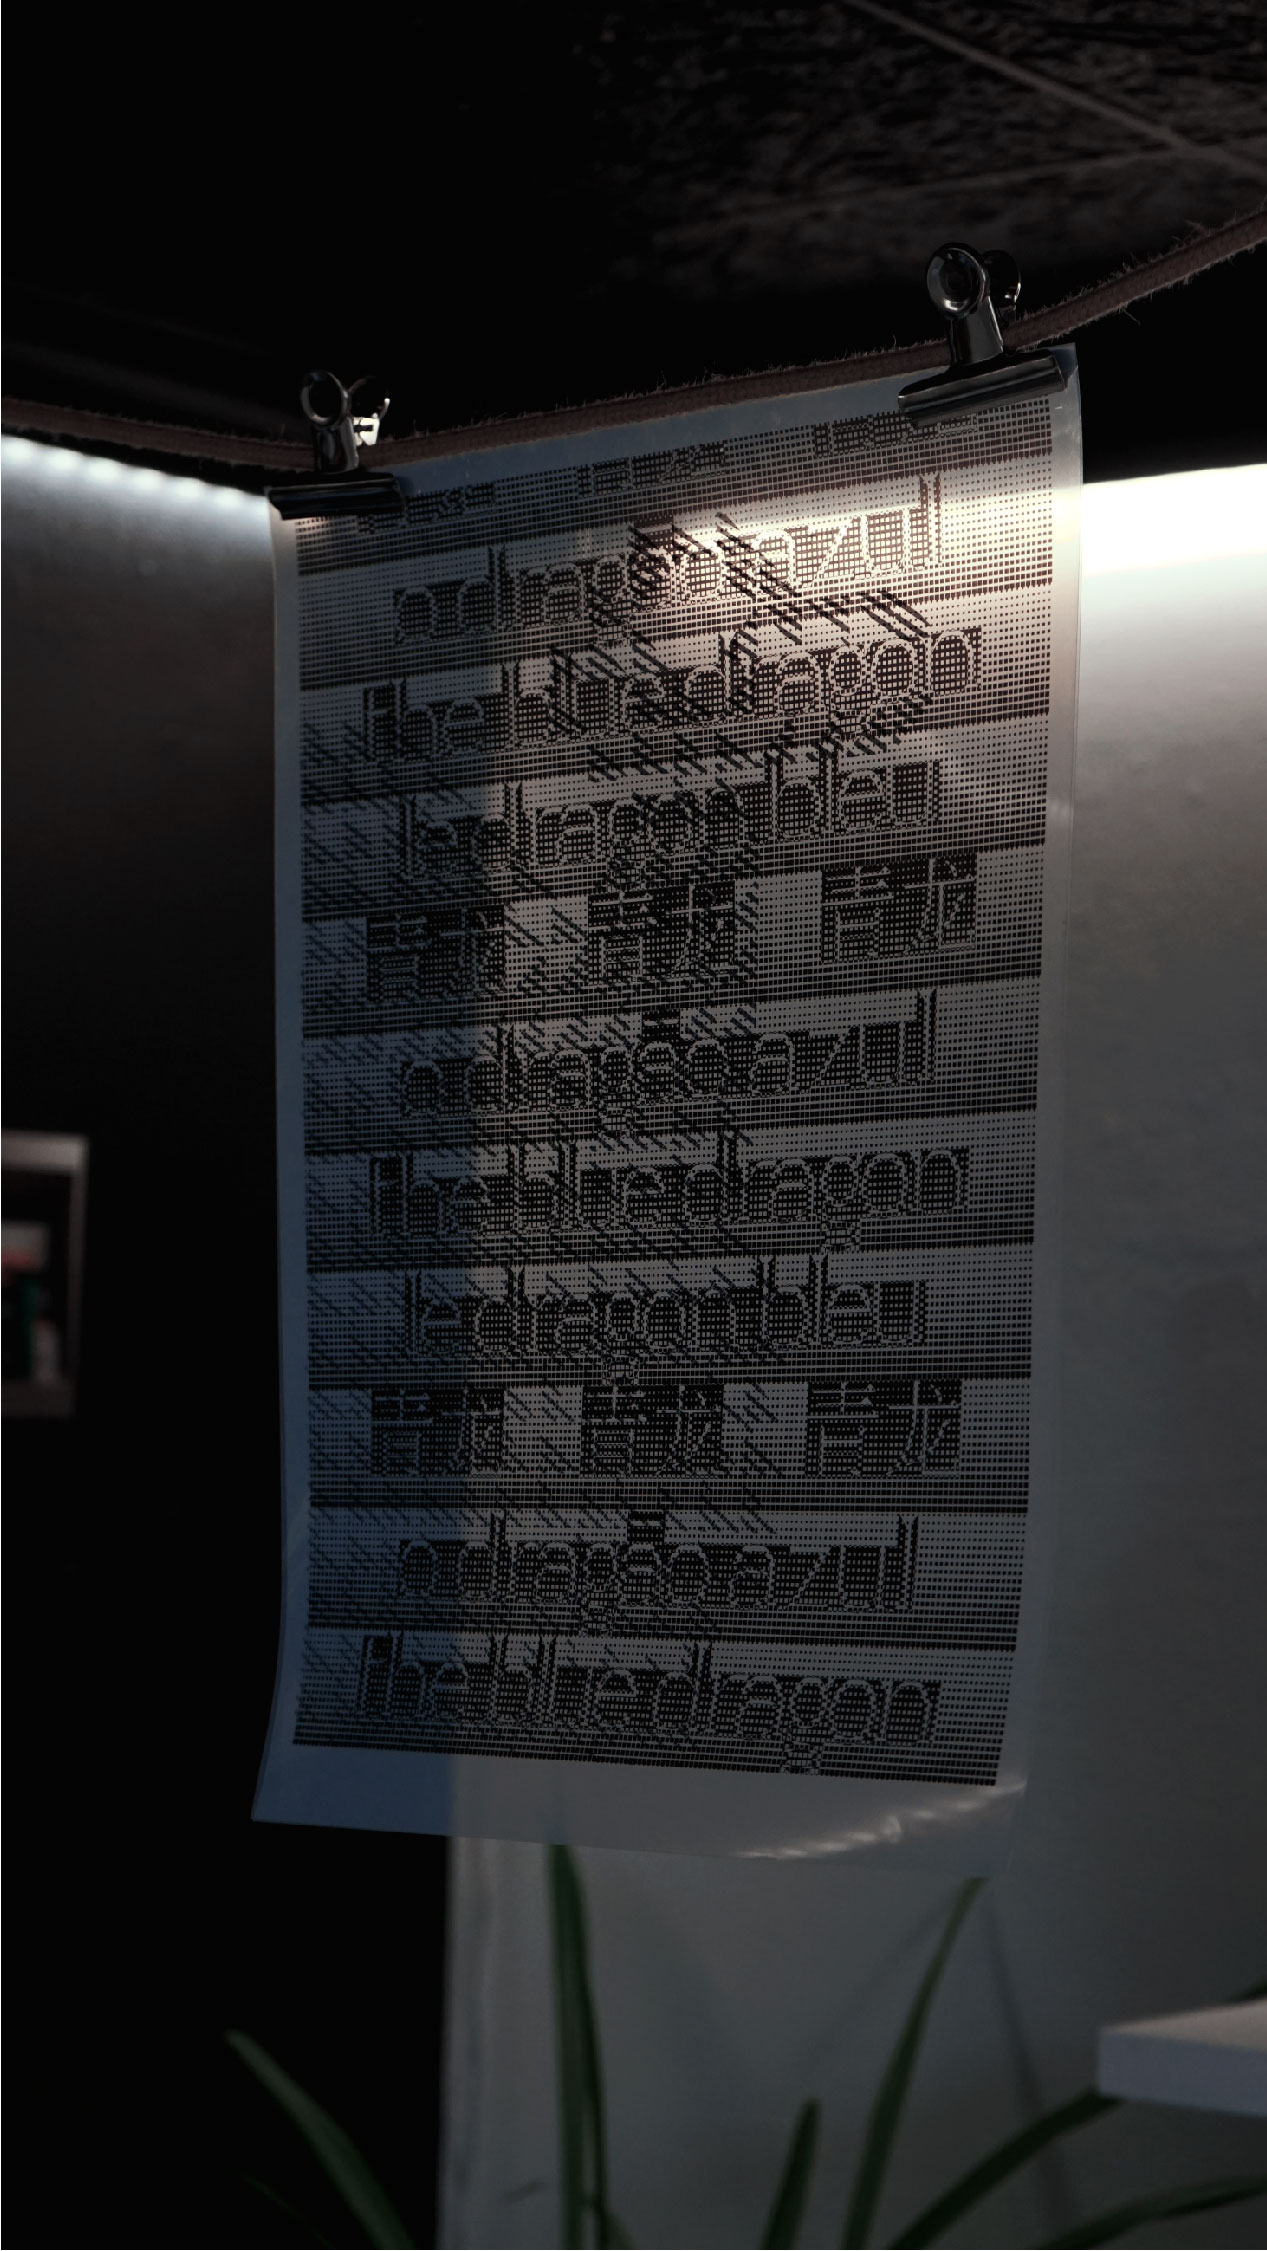 o dragão azul
the blue dragon
le dragon bleu
青龙 青龙 青龙
o dragão azul
the blue dragon
le dragon bleu
青龙 青龙 青龙
o dragão azul
the blue dragon